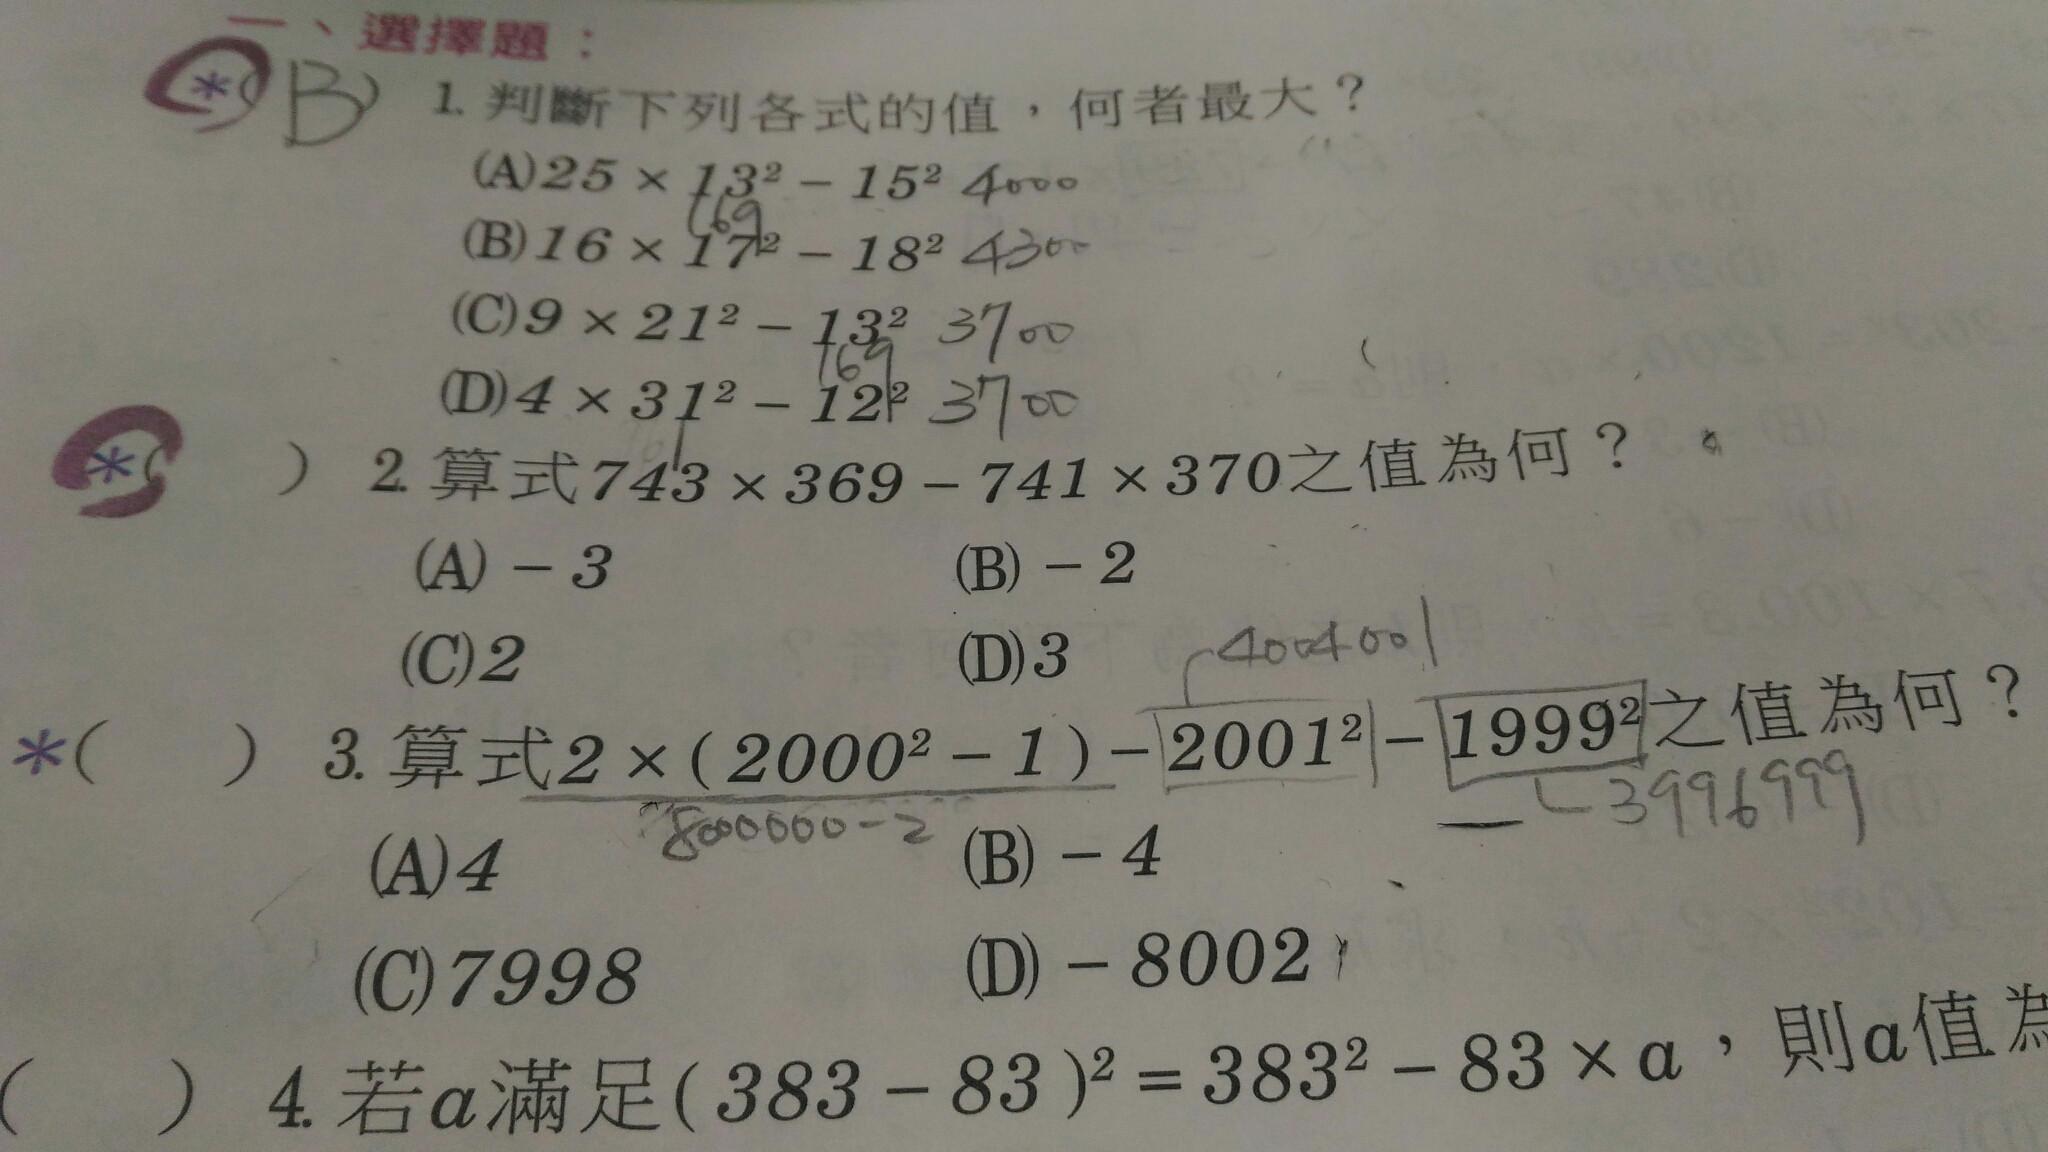 一、選擇題：
*( B ) 1. 判斷下列各式的值，何者最大？
(A)25 × 13² − 15² 4000
169
(B)16 × 17² − 18² 4300
(C)9 × 21² − 13² 3700
169
(D)4 × 31² − 12² 3700
*( ) 2. 算式743 × 369 − 741 × 370之值為何？
(A) − 3 (B) − 2
(C)2 (D)3
4004001
*( ) 3. 算式2 × ( 2000² − 1 ) − 2001² − 1999²之值為何？
8000000-2 3996999
(A)4 (B) − 4
(C)7998 (D) − 8002
( ) 4. 若a滿足( 383 − 83 )² = 383² − 83 × a，則a值為